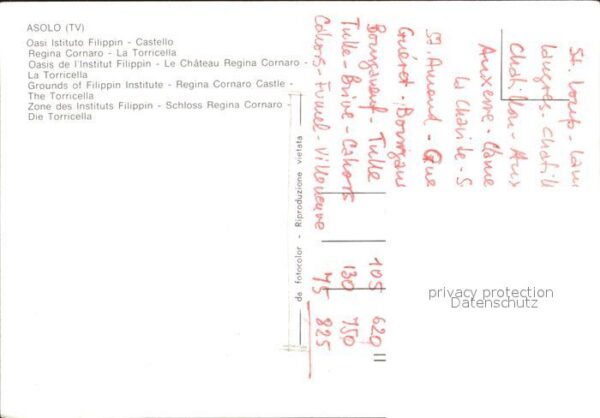 ASOLO (TV)
Oasi Istituto Filippin - Castello
Regina Cornaro - La Torricella
Oasis de l'Institut Filippin - Le Château Regina Cornaro -
La Torricella
Grounds of Filippin Institute - Regina Cornaro Castle -
The Torricella
Zone des Instituts Filippin - Schloss Regina Cornaro -
Die Torricella
da fotocolor - Riproduzione vietata
St. Loup - Lan
Langres - Chatill
Chatillon - Aux
Auxerre - Clame
la Charité - S
St. Amand - Gue
Guéret - Bourgan
Bourganeuf - Tulle
Tulle - Brive - Cahors
Cahors - Fumel - Villeneuve
105 620
130 750
75 825
privacy protection
Datenschutz